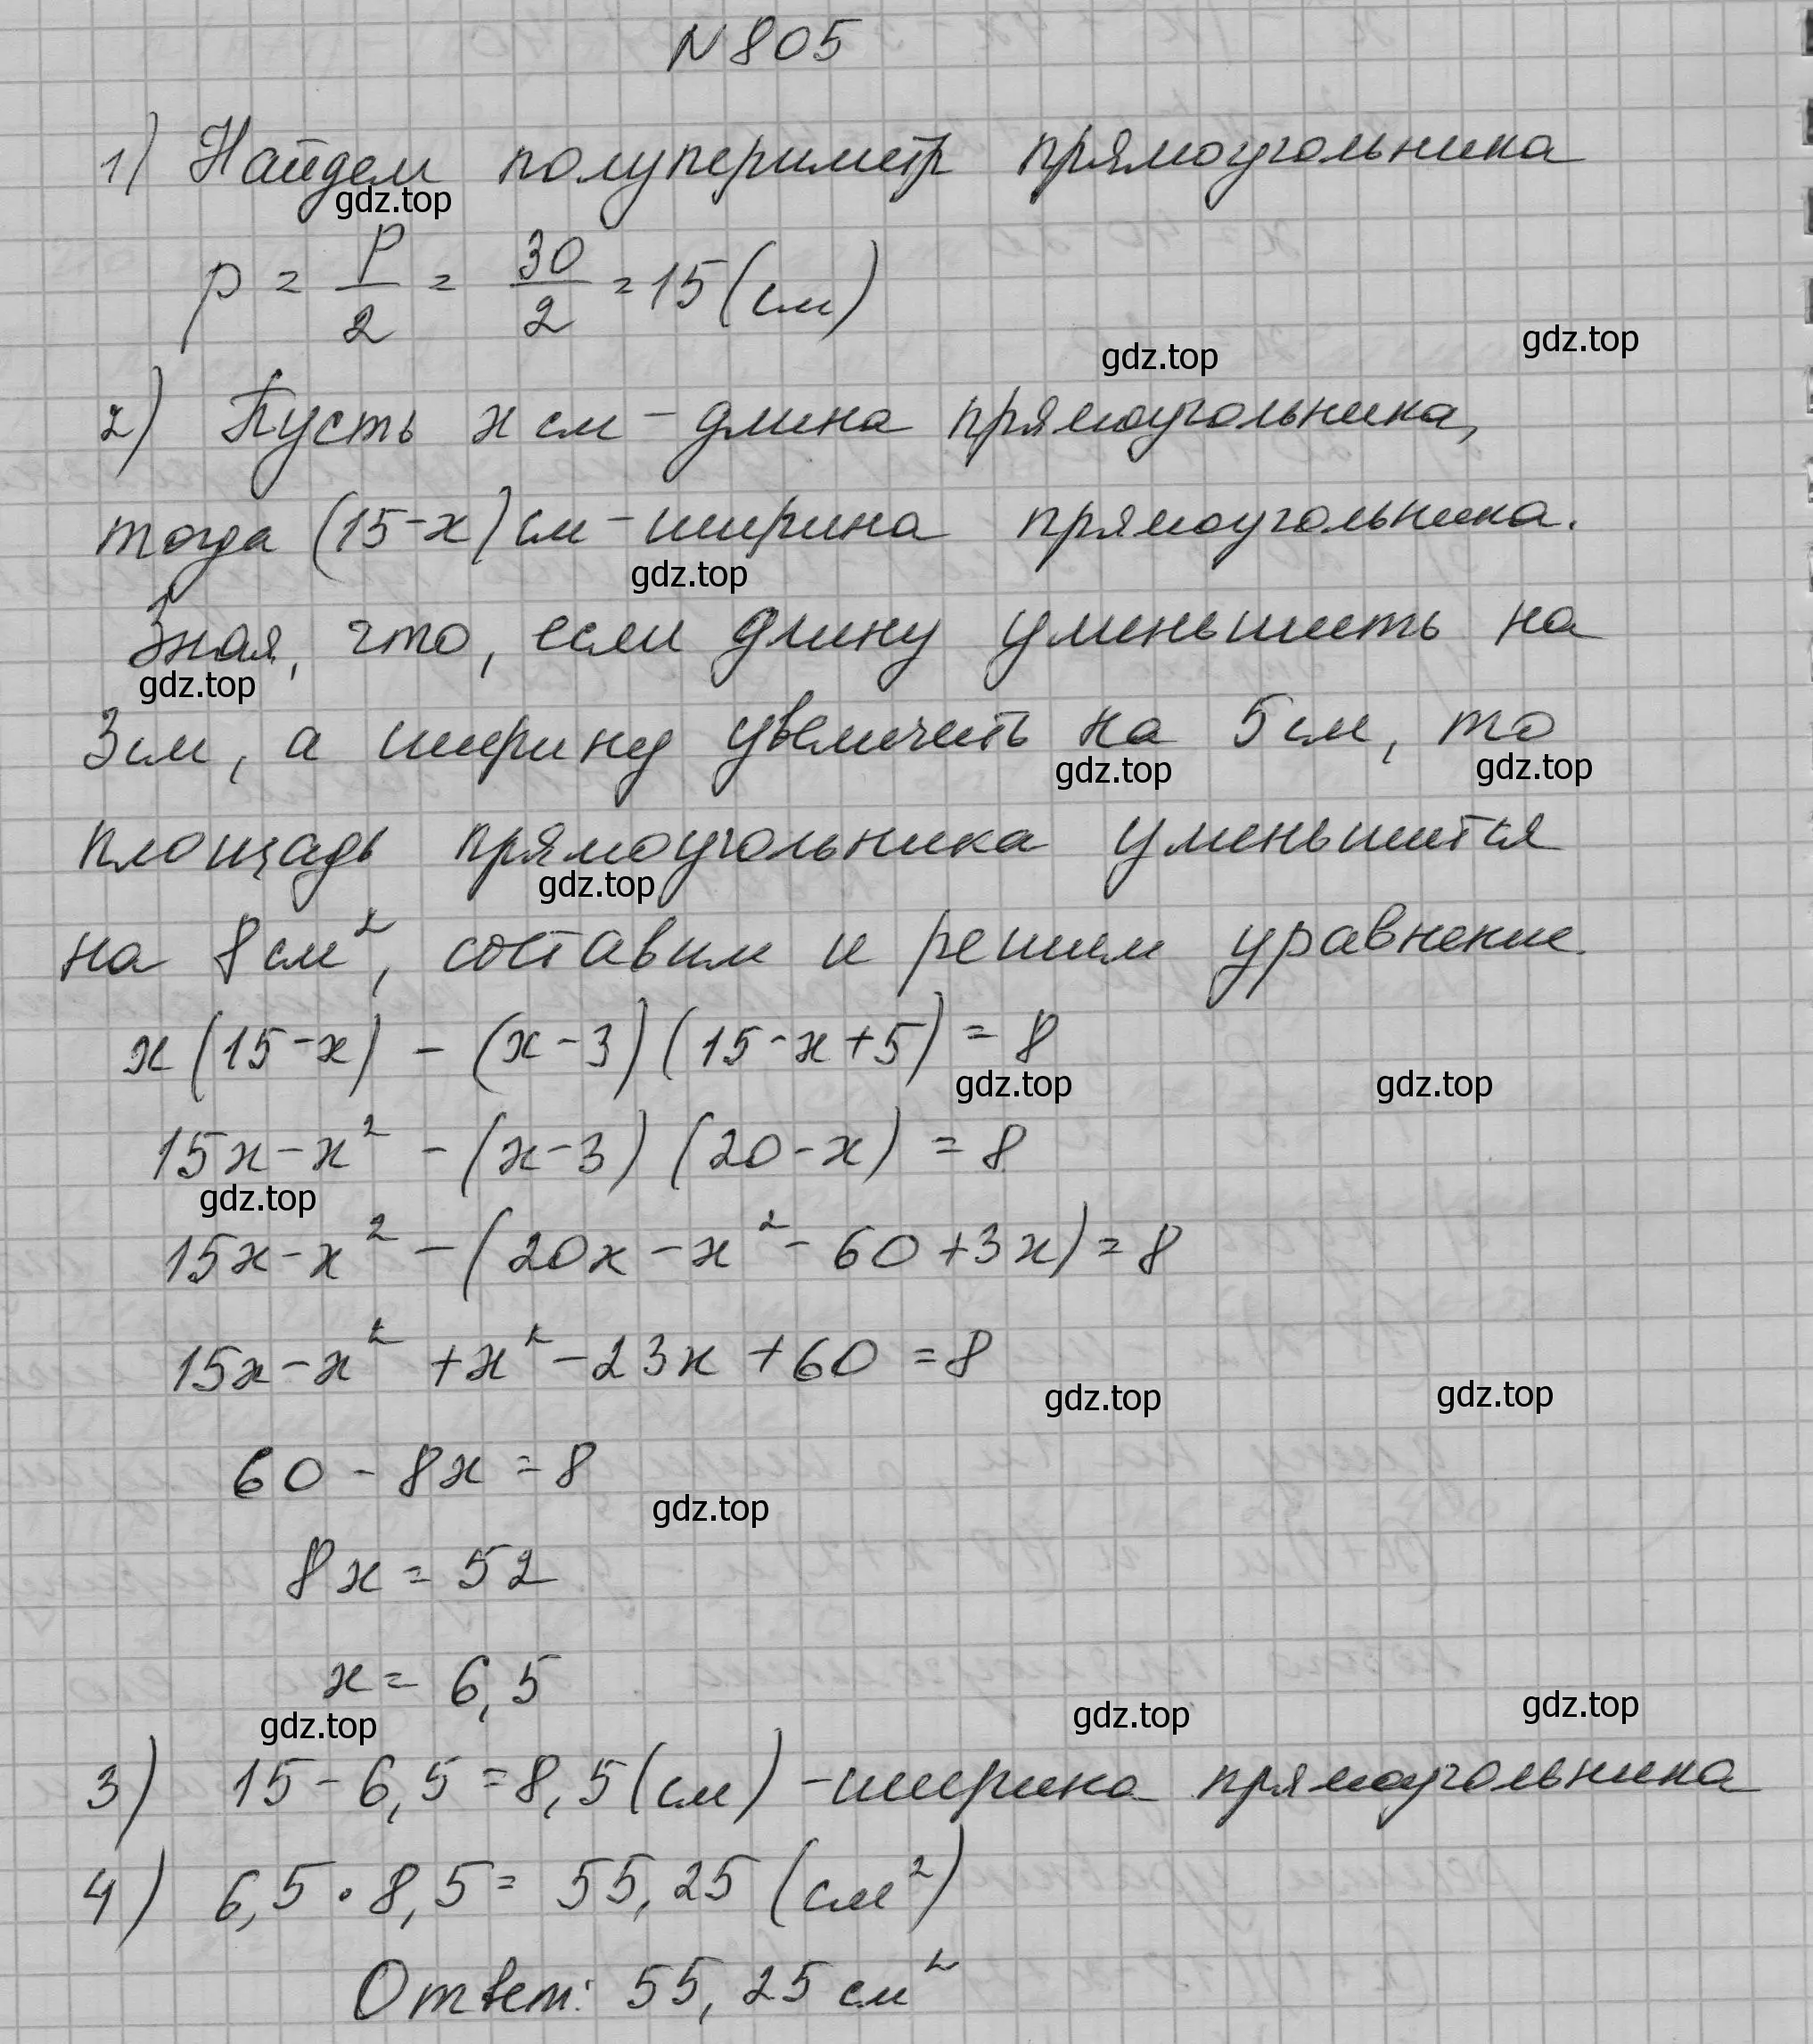 N 805
1) Найдем полупериметр прямоугольника
gdz.top
p = P/2 = 30/2 = 15 (см)
gdz.top gdz.top
2) Пусть x см - длина прямоугольника,
тогда (15-x) см - ширина прямоугольника.
gdz.top
Зная, что, если длину уменьшить на
gdz.top
3 см, а ширину увеличить на 5 см, то
gdz.top gdz.top
площадь прямоугольника уменьшится
gdz.top
на 8 см², составим и решим уравнение.
x(15-x) - (x-3)(15-x+5) = 8
gdz.top gdz.top
15x-x² - (x-3)(20-x) = 8
gdz.top
15x-x² - (20x-x²-60+3x) = 8
15x-x²+x²-23x+60 = 8
gdz.top gdz.top
60-8x = 8
gdz.top
8x = 52
x = 6,5
gdz.top gdz.top gdz.top
3) 15-6,5 = 8,5 (см) - ширина прямоугольника
4) 6,5 • 8,5 = 55,25 (см²)
Ответ: 55,25 см²